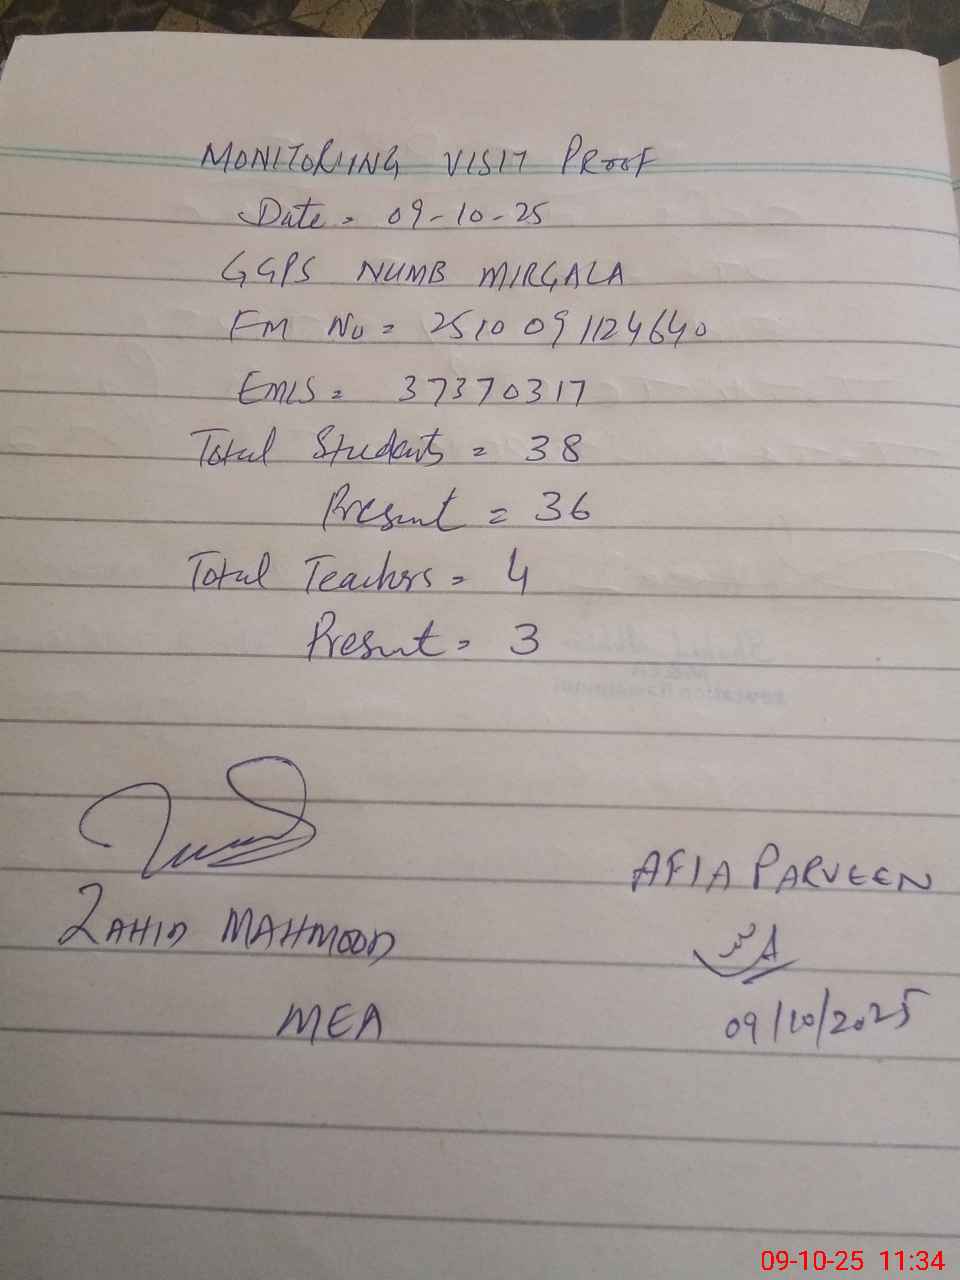 MONITORIING VISIT PROOF
Date = 09-10-25
GGPS NUMB MIRGALA
FM No = 2510091124640
EMIS = 37370317
Total Students = 38
Present = 36
Total Teachers = 4
Present = 3
ZAHID MAHMOOD
MEA
AFIA PARVEEN
09/10/2025
09-10-25 11:34